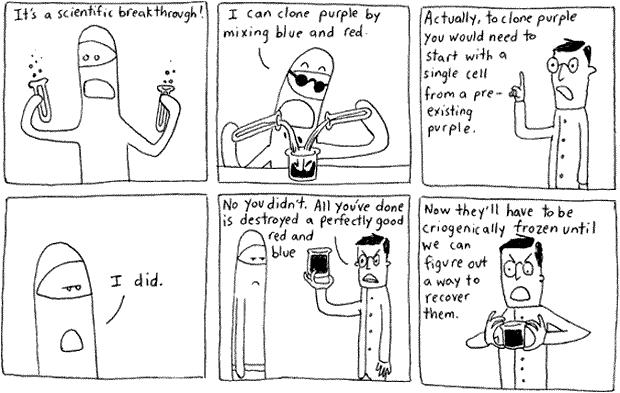 It's a scientific breakthrough!
I can clone purple by
mixing blue and red.
Actually, to clone purple
you would need to
start with a
single cell
from a pre-
existing
purple.
I did.
No you didn't. All you've done
is destroyed a perfectly good
red and
blue
Now they'll have to be
criogenically frozen until
we can
figure out
a way to
recover
them.